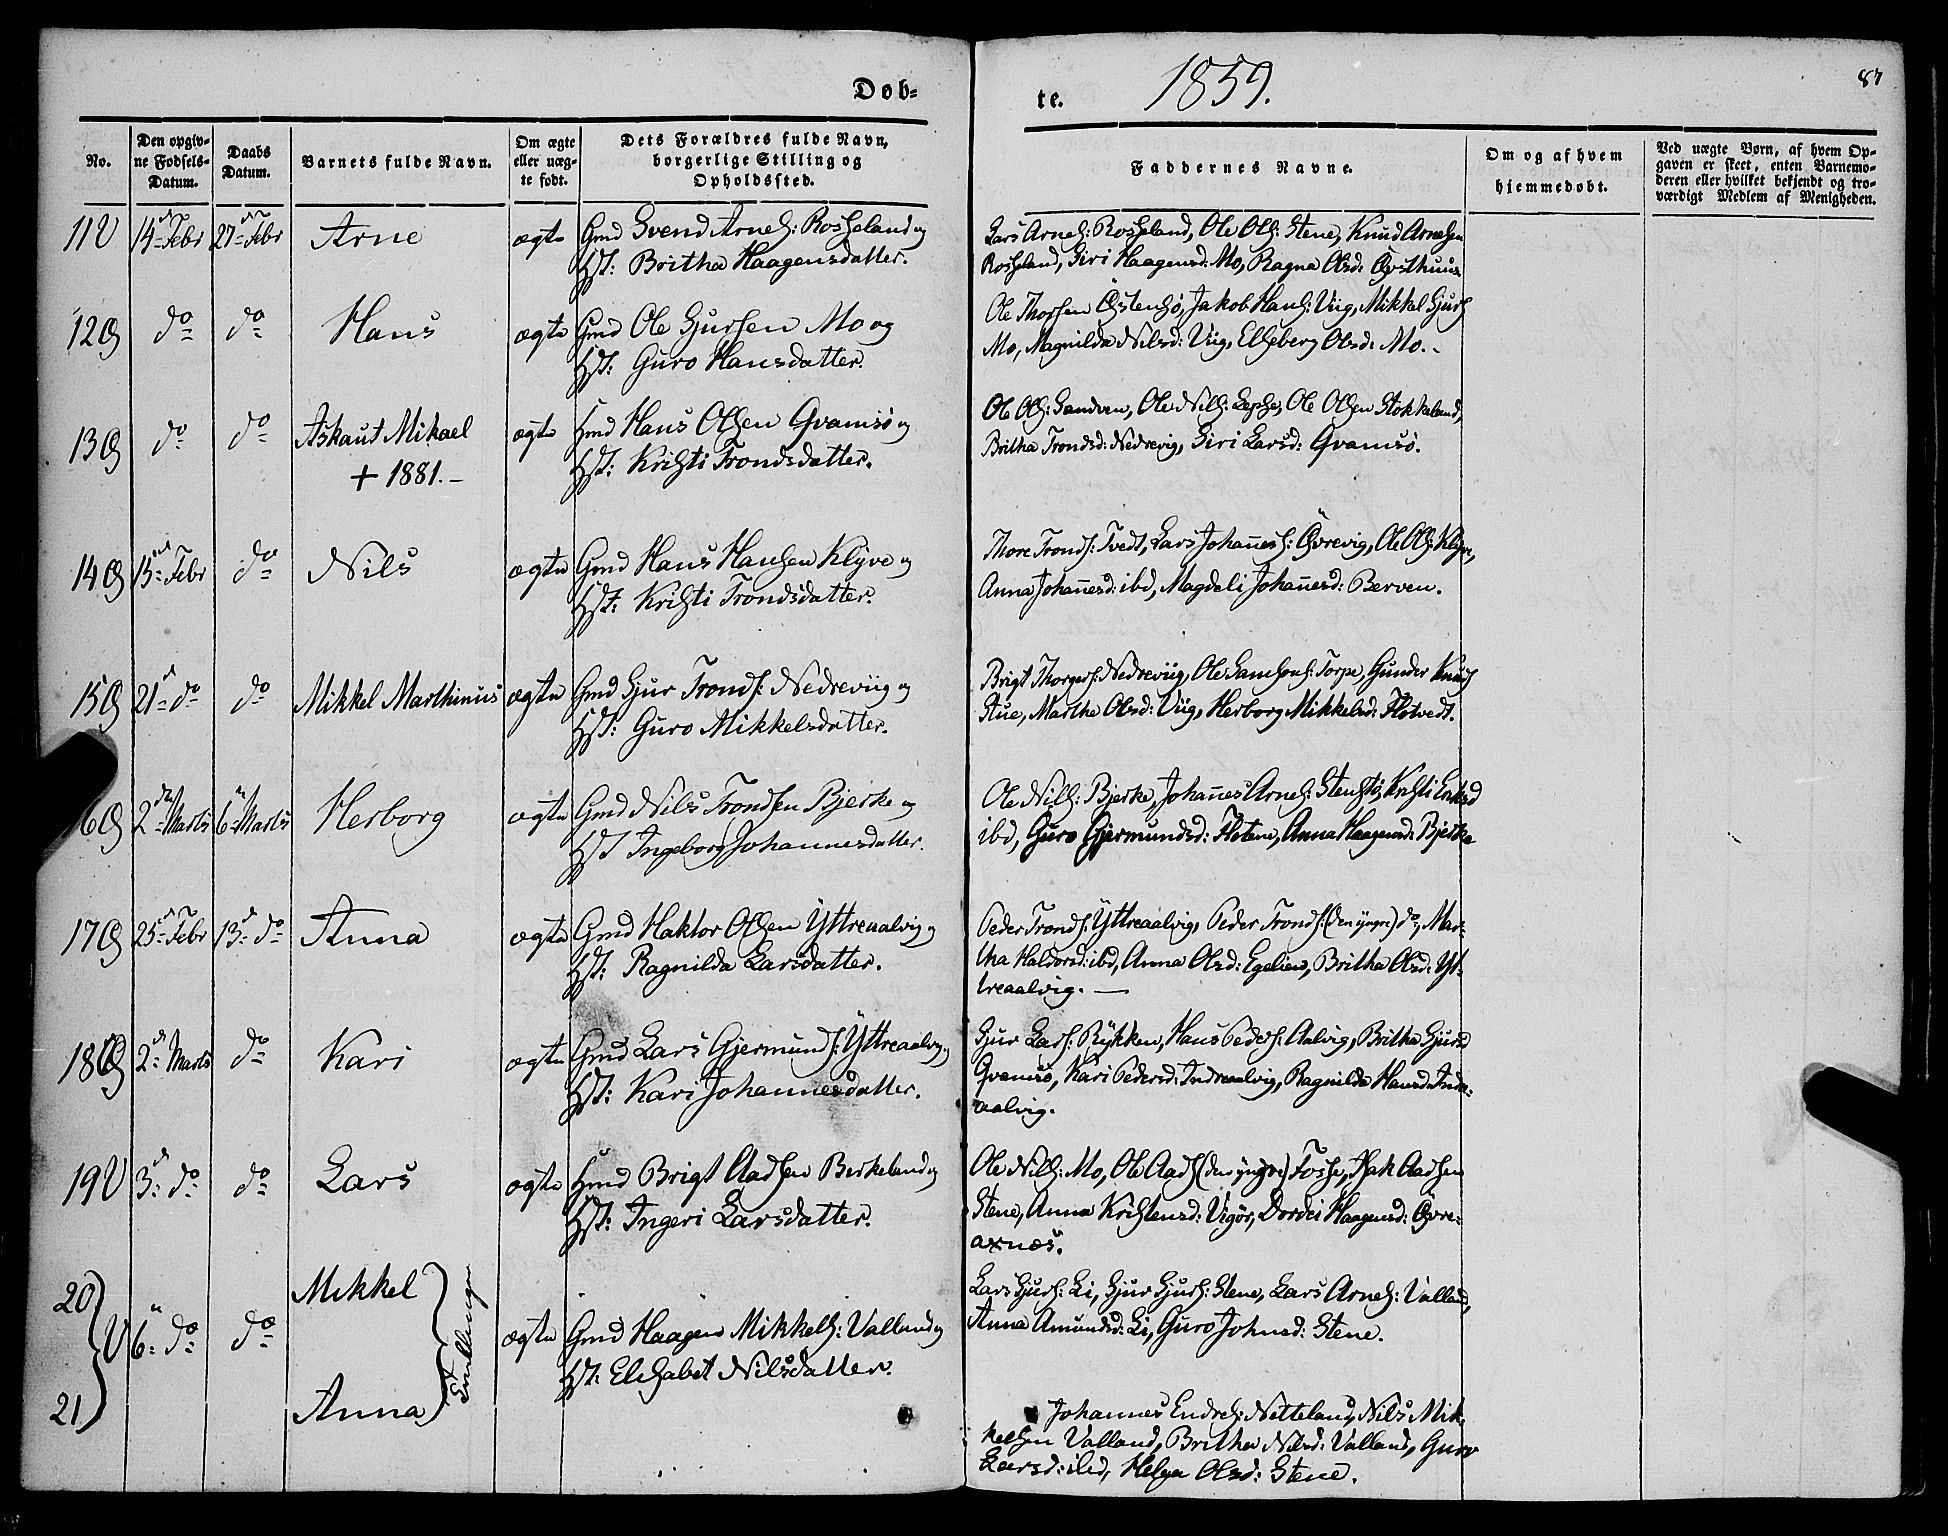 Døb-
te.
1859.
87
No.
Den opgiv-
ne Fødsels-
Datum.
Daabs
Datum.
Barnets fulde Navn.
Om ægte
eller uæg-
te født.
Dets Forældres fulde Navn,
borgerlige Stilling og
Opholdssted.
Faddernes Navne.
Om og af hvem
hjemmedøbt.
Ved uægte Børn, af hvem Op-
gaven er skeet, enten Barnemo-
deren eller hvilket bekjendt og tro-
værdigt Medlem af Menigheden.
11 V 14 Febr 27 Febr Arne ægte Gmd Svend Arnes: Rosseland og
Hst: Britha Haagensdatter.
Lars Arnes: Rosseland, Ole Ols: Stene, Knud Arnesen
Rosseland, Siri Haagensd: Mo, Ragna Olsd: Øvsthuus
12 Ø do do Hans ægte Gmd Ole Gjursen Mo og
Hst: Guro Hansdatter.
Ole Thorsen Østensø, Jakob Hans: Viig, Mikkel Gjurs
Mo, Magnilda Nilsd: Viig, Elseberg Olsd: Mo.-
13 Ø do do Askaut Mikael ægte Hmd Hans Olsen Qvamsø og
+ 1881.- Hst: Kristi Trondsdatter.
Ole Ols: Sandven, Ole Nils: Lepsø, Ole Olsen Stokkeland,
Britha Trondsd: Nedrevig, Siri Larsd: Qvamsø.
14 Ø 15 Febr do Nils ægte Gmd Hans Hansen Klyve og
Hst: Kristi Trondsdatter.
Thore Tronds: Tvedt, Lars Johannes: Øvrevig, Ole Ols: Klyve,
Anna Johannesd: ibd, Magdeli Johannesd: Berven.
15 Ø 21 do do Mikkel Marthinus ægte Gmd Gjur Tronds: Nedreviig og
Hst: Guro Mikkelsdatter.
Brigt Thorgers: Nedreviig, Ole Samsons: Torpe, Gunder Knuds
Aue, Marthe Olsd: Viig, Herborg Mikkelsd: Flotvedt.
6 Ø 2 Marts 6 Marts Herborg ægte Gmd Nils Trondsen Bjerke og
Hst Ingeborg Johannesdatter.
Ole Nils: Bjerke, Johannes Arnes: Stenstø, Kristi Eriksd
ibd, Guro Gjermundsd: Flotene, Anna Haagensd: Bjerke
17 Ø 25 Febr 13 do Anna ægte Gmd Haktor Olsen Yttreaalvig og
Hst: Ragnilda Larsdatter.
Peder Tronds: Yttreaalvig, Peder Tronds: (den yngre) do, Mar-
tha Haldorsd: ibd, Anna Olsd: Egelien, Britha Olsd: Yt-
treaalvig. —
18 Ø 2 Marts do Kari ægte Gmd Lars Gjermunds: Yttreaalvig og
Hst: Kari Johannesdatter.
Gjur Lars: Rykken, Hans Peders: Aalvig, Britha Gjursd
Qvamsø, Kari Pedersd: Indreaalvig, Ragnilda Hansd Indre-
aalvig.
19 V 3 do do Lars ægte Hmd Brigt Aadsen Berkeland og
Hst: Ingeri Larsdatter.
Ole Nils: Mo, Ole Aads (den yngre) Fosse, Isak Aadsen
Stene, Anna Kristensd: Vigør, Dordei Haagensd: Øvre-
axnæs.
20 Mikkel
V 6 do do Tvillinger ægte Gmd Haagen Mikkels: Valland og
Hst: Elisabet Nilsdatter.
21 Anna
Lars Gjurs: Li, Gjur Gjurs: Stene, Lars Arnes: Valland,
Anna Amundsd: Li, Guro Johnsd: Stene.
Johannes Endres: Netteland, Nils Mik-
kelsen Valland, Britha Nilsd: Valland, Guro
Larsd: ibd, Helga Olsd: Stene.